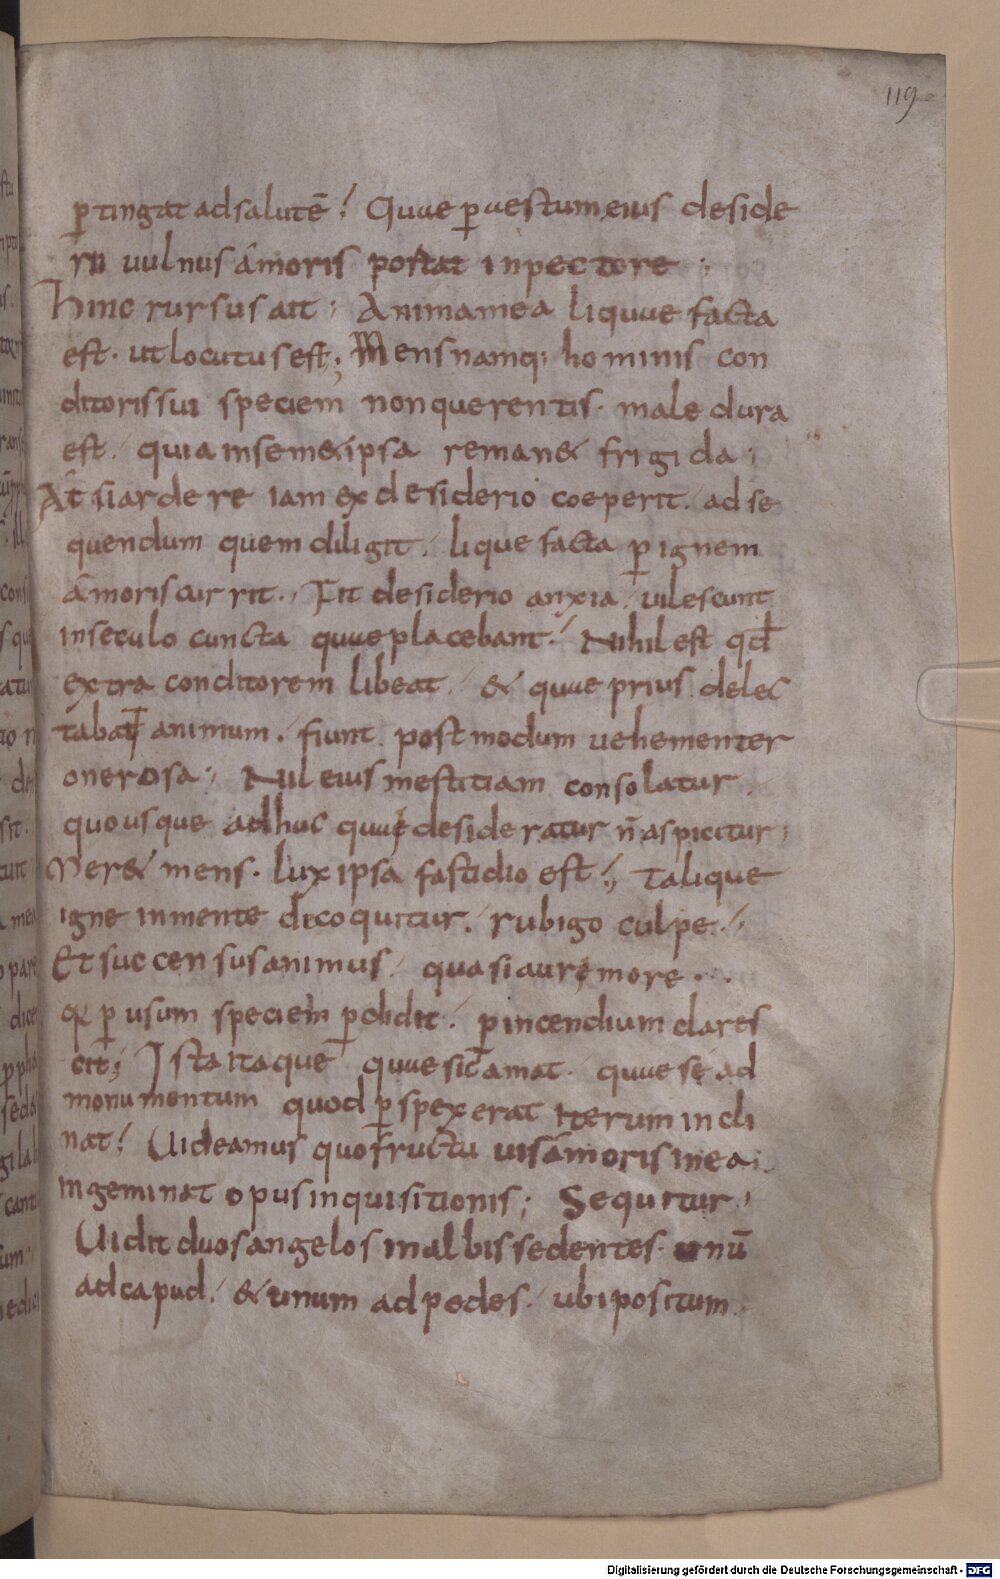 119
ptingat ad salutē! Quae p uestum eius deside
rii uulnus amoris portat in pectore;
Hinc rursus ait; Anima mea liquae facta
est. ut locutus est; Mens namq; hominis con
ditoris sui speciem non querentis. male dura
est. quia in sem&ipsa reman& frigida;
At si ardere iam ex desiderio coeperit. ad se
quendum quem diligit. lique facta p ignem
amoris currit. Fit desiderio anxia. uilescunt
in seculo cuncta quae placebant. Nihil est qđ
extra conditorem libeat. & quae prius delec
tabat animum. fiunt postmodum uehementer
onerosa; Nil eius mestitiam consolatur
quousque adhuc qui desideratur n̄ aspicitur;
Mer& mens. lux ipsa fastidio est; Talique
igne in mente decoquitur. rubigo culpe.
Et succensus animus. quasi auri more.
p usum speciem pdidit. p incendium clares
cit; Ista itaque quae sic amat. quae se ad
monumentum quod pspexerat iterum incli
nat! Uideamus quo fructu uis amoris in ea
ingeminat opus inquisitionis; Sequitur;
Uidit duos angelos in albis sedentes. unū
ad capud. & unum ad pedes. ubi positum
Digitalisierung gefördert durch die Deutsche Forschungsgemeinschaft - DFG